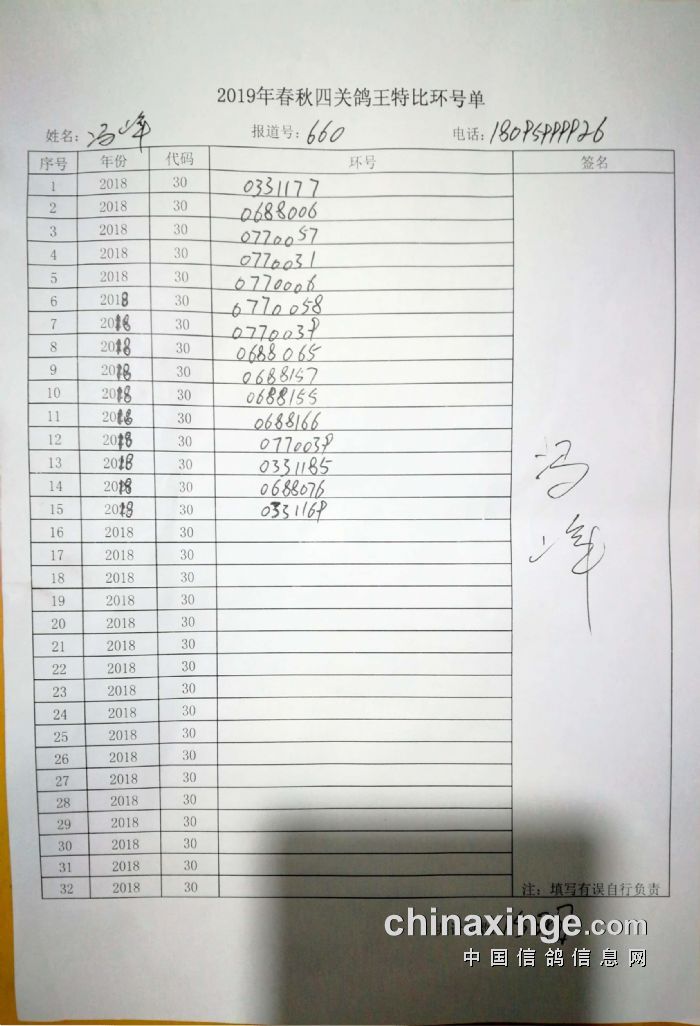 2019年春秋四关鸽王特比环号单
姓名: 冯峰 报道号: 660 电话: 18095999926
序号 年份 代码 环号 签名
1 2018 30 0331177
2 2018 30 0688006
3 2018 30 0770057
4 2018 30 0770031
5 2018 30 0770006
6 2018 30 0770058
7 2018 30 0770039
8 2018 30 0688065
9 2018 30 0688157
10 2018 30 0688155
11 2018 30 0688166
12 2018 30 0770039
13 2018 30 0331185
14 2018 30 0688076
15 2018 30 0331169
16 2018 30
17 2018 30
18 2018 30
19 2018 30
20 2018 30
21 2018 30
22 2018 30
23 2018 30
24 2018 30
25 2018 30
26 2018 30
27 2018 30
28 2018 30
29 2018 30
30 2018 30
31 2018 30
32 2018 30
冯峰
注: 填写有误自行负责
chinaxinge.com
中国信鸽信息网